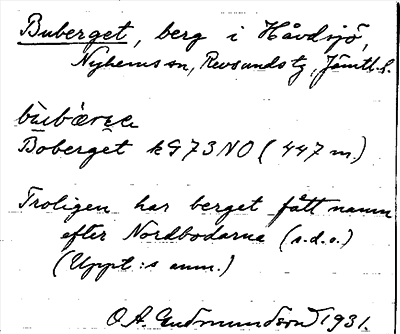 Buberget, berg i Håvdsjö,
Nyhems sn, Revsunds tg, Jämtl. l.
Boberget kG73NO (447 m)
Troligen har berget fått namn
efter Nordbodarna (s.d.o.)
(Uppt:s anm.)
O.A. Gudmundsson 1931.